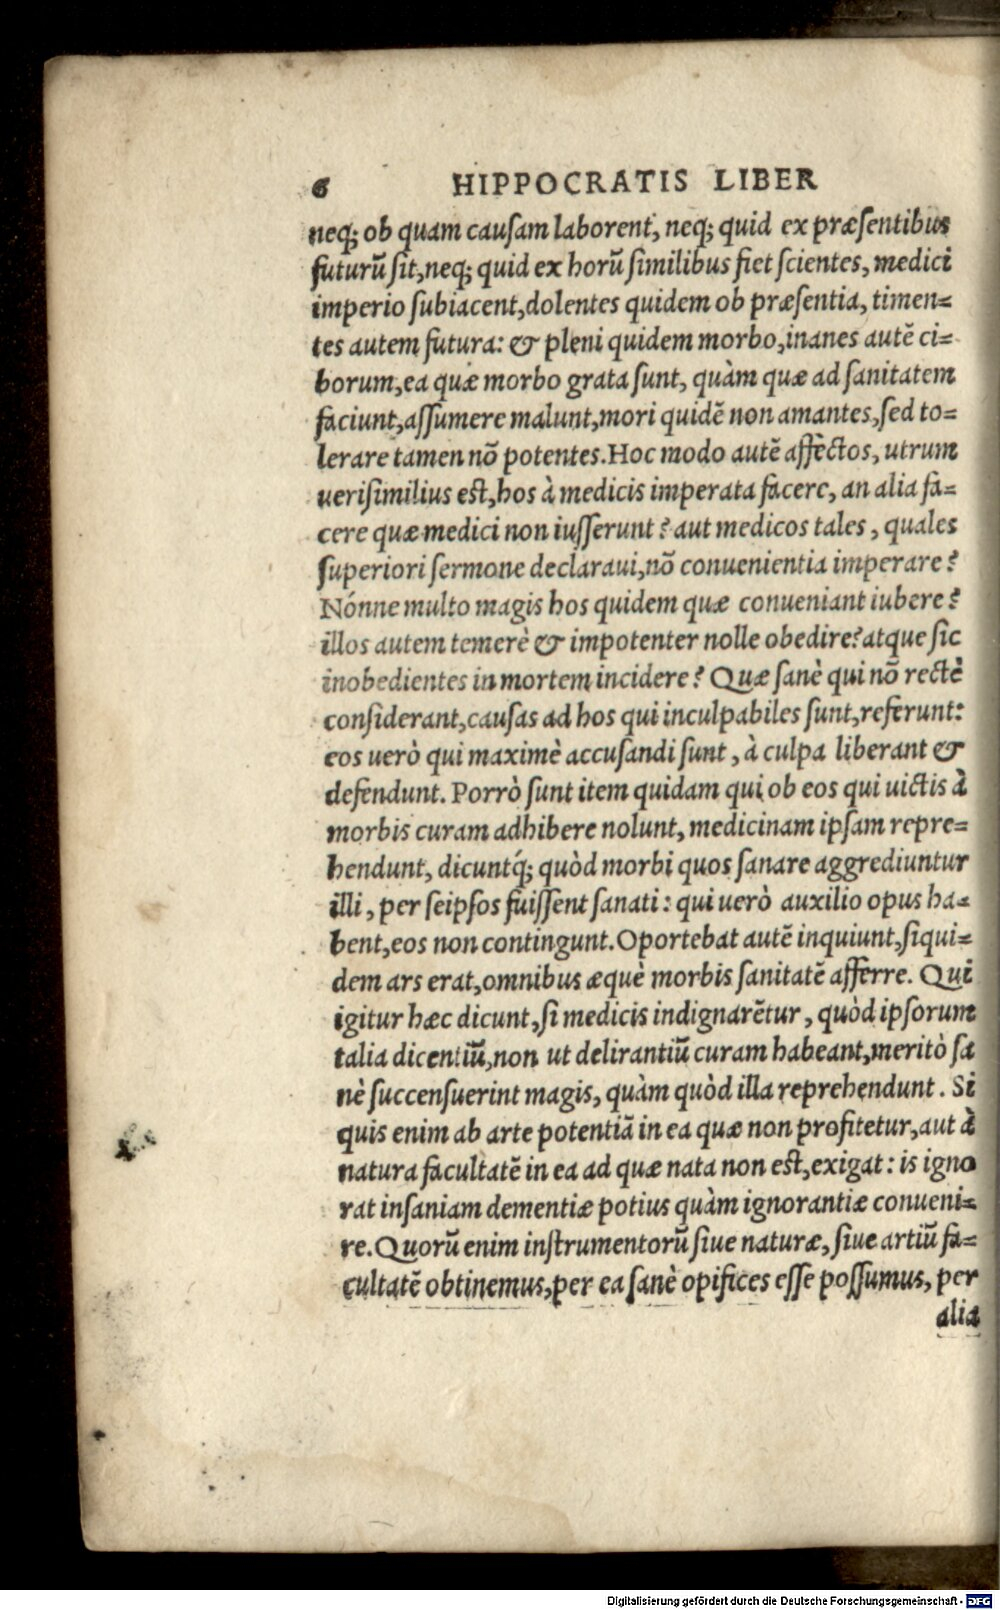 6 HIPPOCRATIS LIBER
neq; ob quam cauſam laborent, neq; quid ex præſentibus
futurũ ſit, neq; quid ex horũ ſimilibus fiet ſcientes, medici
imperio ſubiacent, dolentes quidem ob præſentia, timen=
tes autem futura: & pleni quidem morbo, inanes autẽ ci=
borum, ea quæ morbo grata ſunt, quàm quæ ad ſanitatem
faciunt, aſſumere malunt, mori quidẽ non amantes, ſed to=
lerare tamen nõ potentes. Hoc modo autẽ affèctos, utrum
ueriſimilius eſt, hos à medicis imperata facere, an alia fa=
cere quæ medici non iuſſerunt? aut medicos tales, quales
ſuperiori ſermone declaraui, nõ conuenientia imperare?
Nónne multo magis hos quidem quæ conueniant iubere?
illos autem temerè & impotenter nolle obedire? atque ſic
inobedientes in mortem incidere? Quæ ſanè qui nõ rectè
conſiderant, cauſas ad hos qui inculpabiles ſunt, referunt:
eos uerò qui maximè accuſandi ſunt, à culpa liberant &
defendunt. Porrò ſunt item quidam qui ob eos qui uictis à
morbis curam adhibere nolunt, medicinam ipſam repre=
hendunt, dicuntq́; quòd morbi quos ſanare aggrediuntur
illi, per ſeipſos fuiſſent ſanati: qui uerò auxilio opus ha=
bent, eos non contingunt. Oportebat autẽ inquiunt, ſiqui=
dem ars erat, omnibus æquè morbis ſanitatẽ afferre. Qui
igitur hæc dicunt, ſi medicis indignarẽtur, quòd ipſorum
talia dicentiũ, non ut delirantiũ curam habeant, meritò ſa
nè ſuccenſuerint magis, quàm quòd illa reprehendunt. Si
quis enim ab arte potentiã in ea quæ non profitetur, aut à
natura facultatẽ in ea ad quæ nata non eſt, exigat: is igno
rat inſaniam dementiæ potius quàm ignorantiæ conueni=
re. Quorũ enim inſtrumentorũ ſiue naturæ, ſiue artiũ fa=
cultatẽ obtinemus, per ea ſanè opifices eſſe poſſumus, per
alia
Digitalisierung gefördert durch die Deutsche Forschungsgemeinschaft - DFG